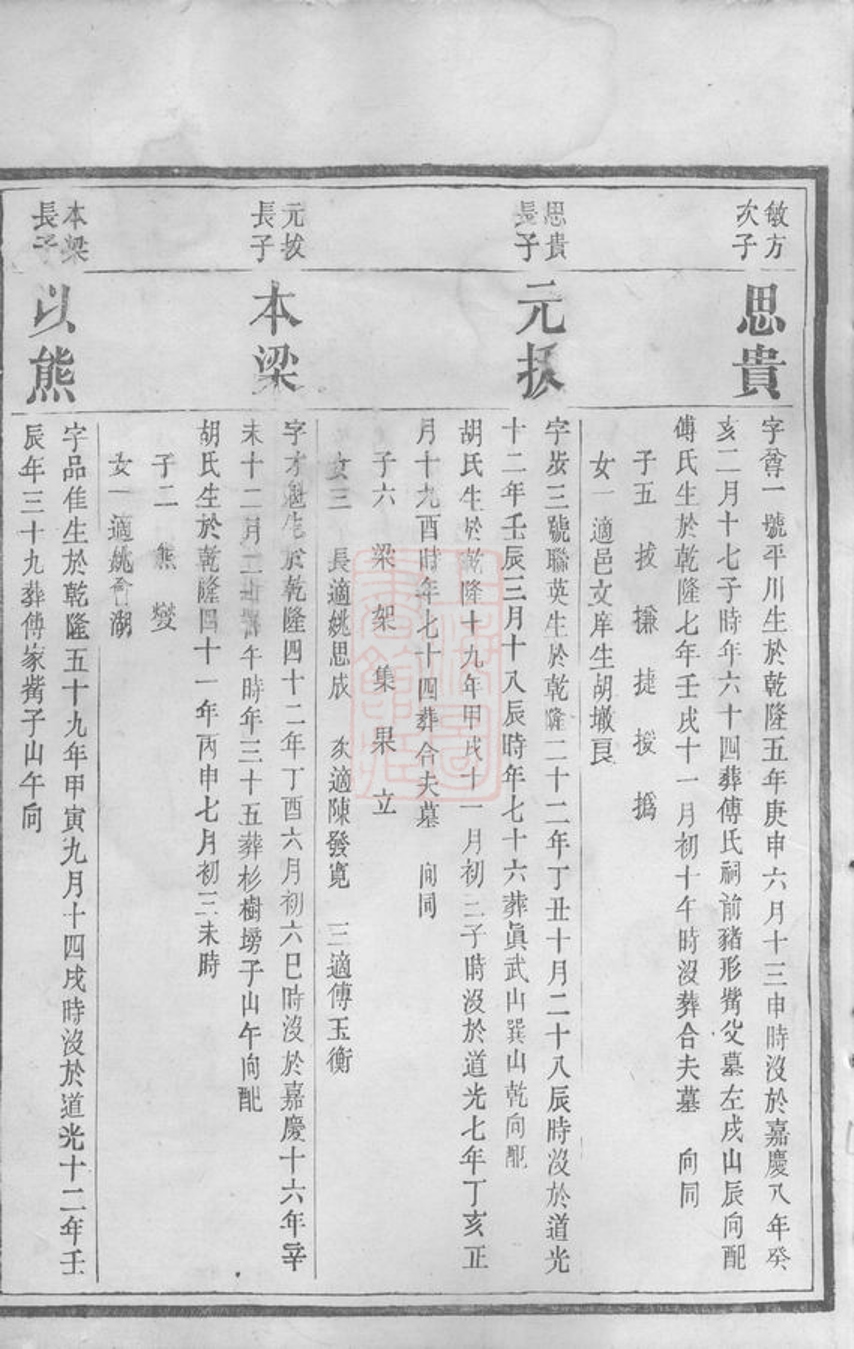 敏方
次子
思貴
字尊一號平川生於乾隆五年庚申六月十三申時沒於嘉慶八年癸
亥二月十七子時年六十四葬傅氏祠前豬形觜父墓左戌山辰向配
傅氏生於乾隆七年壬戌十一月初十午時沒葬合夫墓 向同
子五 拔 㨂 捷 援 撝
女一適邑文庠生胡墩良
思貴
長子
元拔
字步三號聯英生於乾隆二十二年丁丑十月二十八辰時沒於道光
十二年壬辰三月十八辰時年七十六葬眞武山巽山乾向配
胡氏生於乾隆十九年甲戌十一月初二子時沒於道光七年丁亥正
月十九酉時年七十四葬合夫墓 向同
子六 梁 架 集 果 立
女三 長適姚思成 次適陳發寬 三適傅玉衡
元拔
長子
本梁
字才魁生於乾隆四十二年丁酉六月初六巳時沒於嘉慶十六年辛
未十二月二午時年三十五葬杉樹塝子山午向配
胡氏生於乾隆四十一年丙申七月初三未時
子二 熊 燮
女一適姚會湖
本梁
長子
以熊
字品佳生於乾隆五十九年甲寅九月十四戌時沒於道光十二年壬
辰年三十九葬傅家觜子山午向